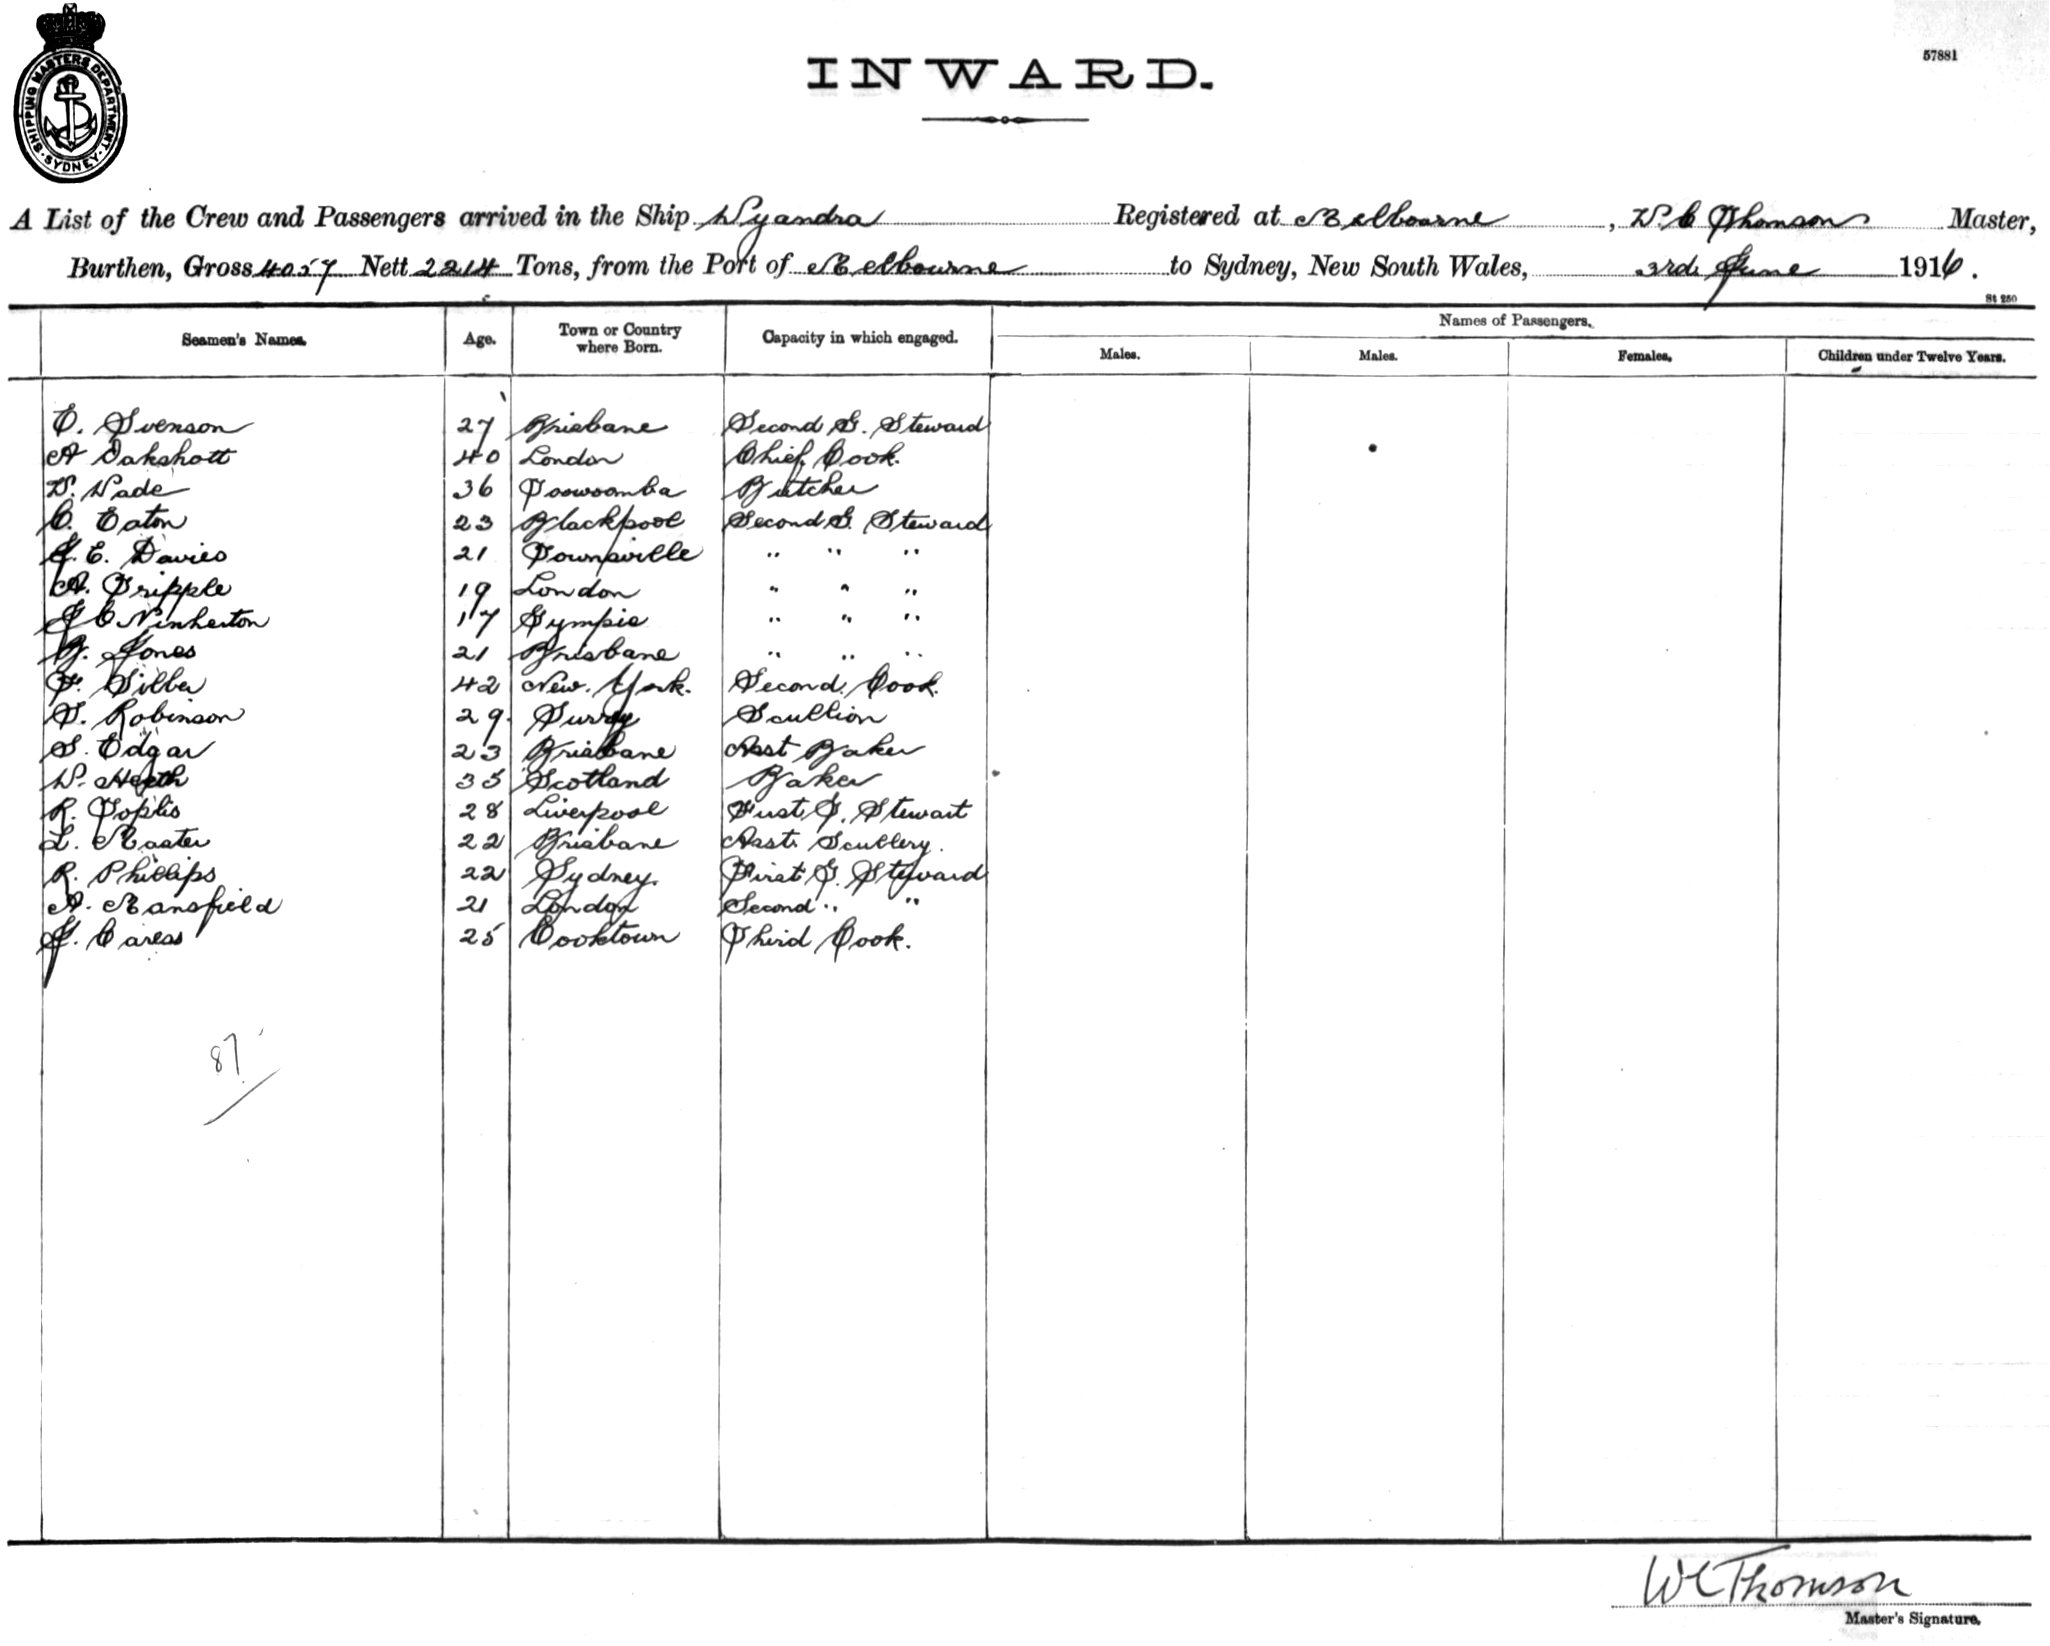 SHIPPING MASTERS DEPARTMENT · SYDNEY ·
57881
INWARD.
A List of the Crew and Passengers arrived in the Ship Wyandra Registered at Melbourne, W C Thomson Master,
Burthen, Gross 4057 Nett 2214 Tons, from the Port of Melbourne to Sydney, New South Wales, 3rd June 1916.
St 250
Seamen's Names. Age. Town or Country where Born. Capacity in which engaged. Names of Passengers.
Males. Males. Females. Children under Twelve Years.
E. Svenson 27 Brisbane Second G. Steward
A Oakshott 40 London Chief Cook.
W. Wade 36 Toowoomba Butcher
C. Eaton 23 Blackpool Second G. Steward
J. E. Davies 21 Townsville " " "
A. Tripple 19 London " " "
17 Gympie " " "
B. Jones 21 Brisbane " " "
F. Silber 42 New York. Second Cook.
T. Robinson 29. Surry Scullion
S. Edgar 23 Brisbane Asst Baker
W. 35 Scotland Baker
R. Toplis 28 Liverpool First G. Stewart
L. Master 22 Brisbane Asst. Scullery.
R. Phillips 22 Sydney. First G. Steward
A. Mansfield 21 London Second " "
J. 25 Cooktown Third Cook.
87
W C Thomson
Master's Signature.